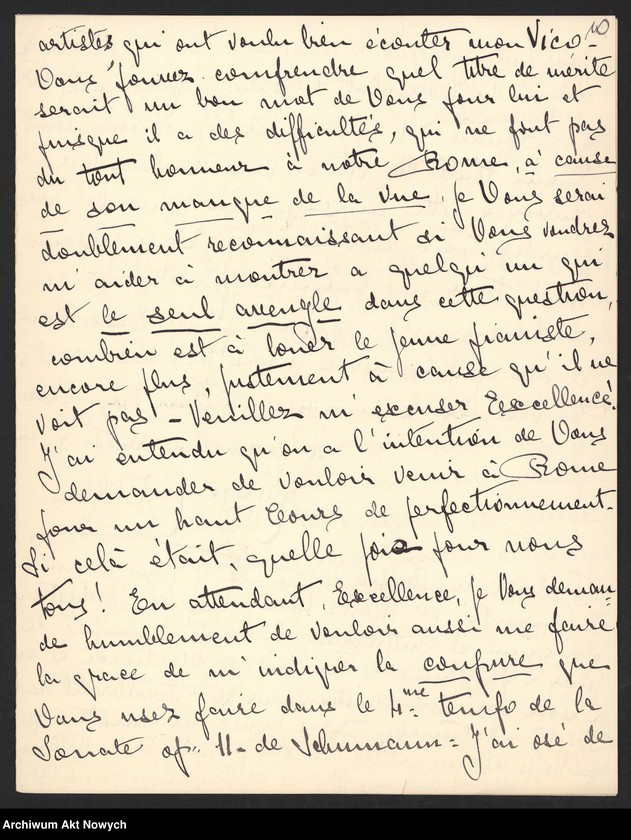 10
artistes qui ont voulu bien écouter mon Vico-
Vous pouvez comprendre quel titre de mérite
serait un bon mot de Vous pour lui et
puisque il a des difficultés, qui ne font pas
du tout honneur à notre Rome, à cause
de son manque de la vue, je Vous serai
doublement reconnaissant si Vous voudrez
m'aider à montrer a quelqu'un qui
est le seul aveugle dans cette question,
combien est à louer le jeune pianiste,
encore plus, justement à cause qu'il ne
voit pas - Veuillez m'excuser Excellence!
J'ai entendu qu'on a l'intention de Vous
demander de vouloir venir à Rome
pour un haut Cours de perfectionnement.
Si celà était, quelle joie pour nous
tous! En attendant, Excellence, je Vous deman-
de humblement de vouloir aussi me faire
la grace de m'indiquer la coupure que
Vous usez faire dans le 4.me tempo de la
Sonate op. 11 - de Schumann = J'ai osé de
Archiwum Akt Nowych